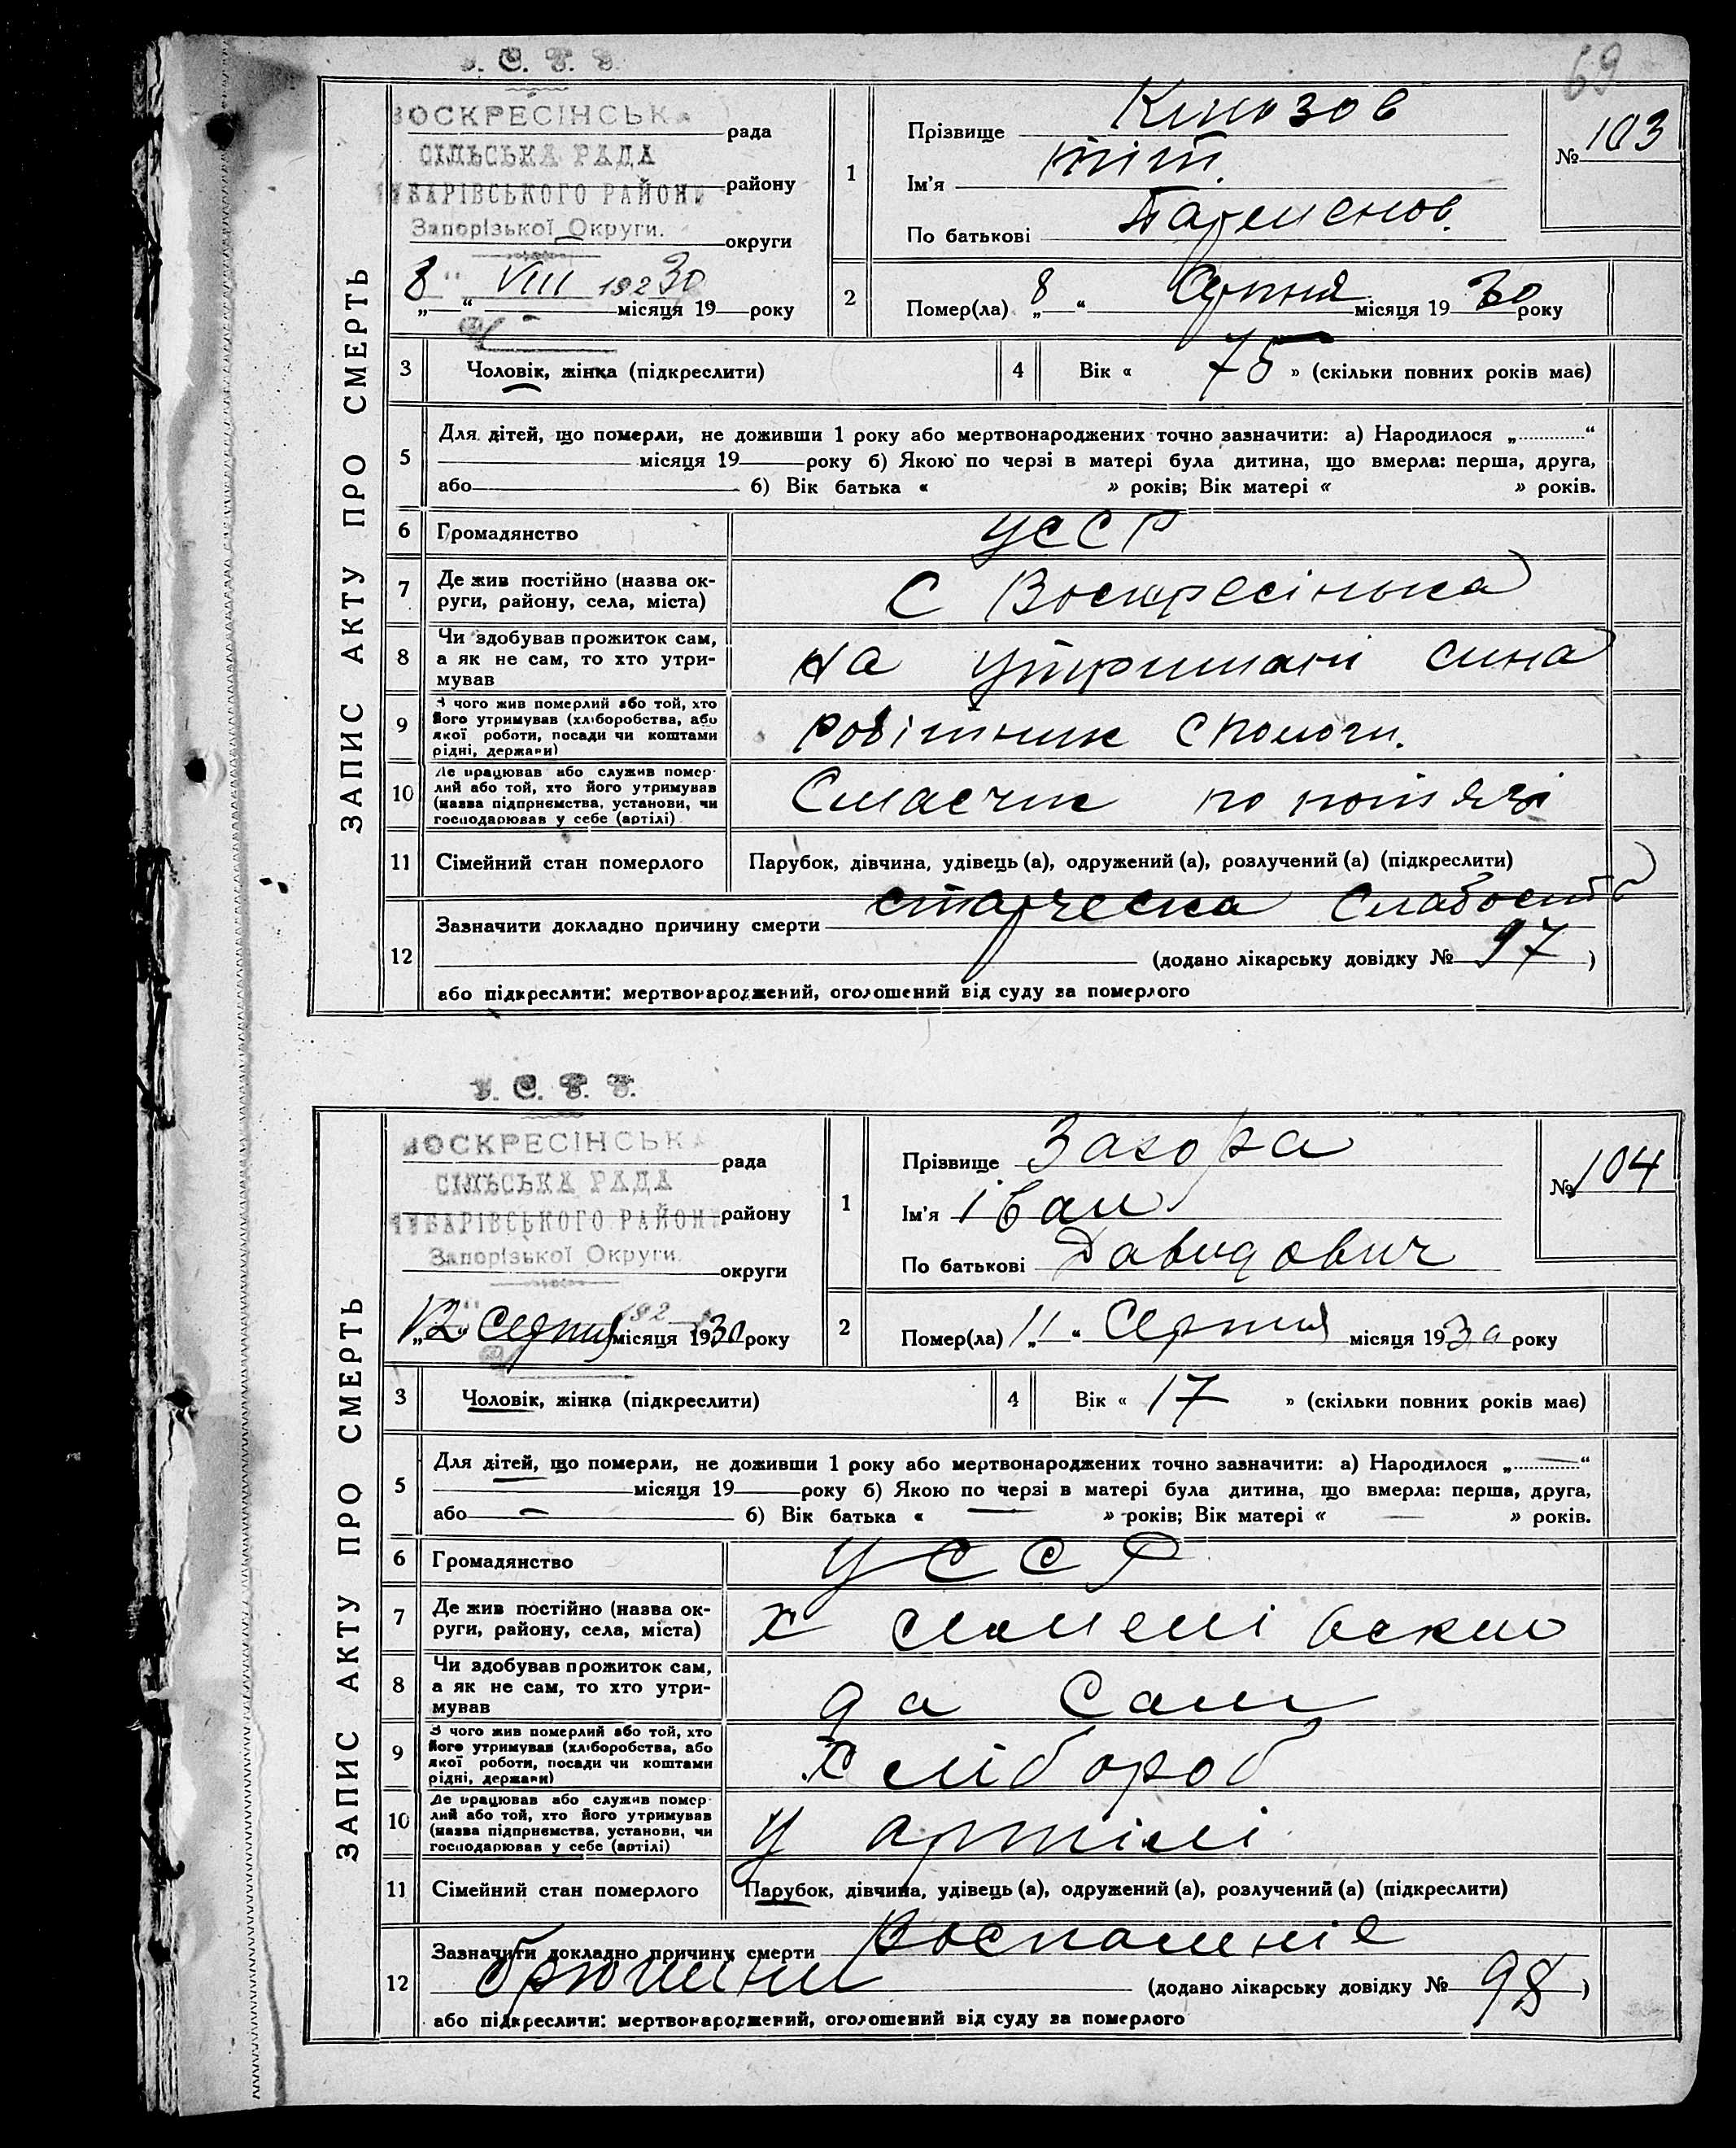 У. С. Р. Р.
69
ВОСКРЕСІНСЬКА рада
СІЛЬСЬКА РАДА
ЧУБАРІВСЬКОГО РАЙОНУ району
Запорізької Округи. округи
8 VIII 192 30
„ “ місяця 19 року
1
Прізвище
Ім'я Тіт
По батькові
№ 103
2
Помер(ла) „ 8 “ Серпня місяця 19 30 року
ЗАПИС АКТУ ПРО СМЕРТЬ
3 Чоловік, жінка (підкреслити)
4 Вік « 75 » (скільки повних років має)
5 Для дітей, що померли, не доживши 1 року або мертвонароджених точно зазначити: а) Народилося „ “
місяця 19 року б) Якою по черзі в матері була дитина, що вмерла: перша, друга,
або б) Вік батька « » років; Вік матері « » років.
6 Громадянство УССР
7 Де жив постійно (назва ок-
руги, району, села, міста) С Воскресінька
8 Чи здобував прожиток сам,
а як не сам, то хто утри-
мував на утримані сина
9 З чого жив померлий або той, хто
його утримував (хліборобства, або
якої роботи, посади чи коштами
рідні, держави) робітник
10 Де працював або служив помер-
лий або той, хто його утримував
(назва підприємства, установи, чи
господарював у себе (артілі) Смасчик по
11 Сімейний стан померлого Парубок, дівчина, удівець (а), одружений (а), розлучений (а) (підкреслити)
12 Зазначити докладно причину смерти старческа слабость
(додано лікарську довідку № 97 )
або підкреслити: мертвонароджений, оголошений від суду за померлого
У. С. Р. Р.
ВОСКРЕСІНСЬКА рада
СІЛЬСЬКА РАДА
ЧУБАРІВСЬКОГО РАЙОНУ району
Запорізької Округи. округи
192
„ 12 “ Серпня місяця 19 30 року
1
Прізвище Загора
Ім'я Іван
По батькові Давидович
№ 104
2
Помер(ла) „ 11 “ Серпня місяця 19 30 року
ЗАПИС АКТУ ПРО СМЕРТЬ
3 Чоловік, жінка (підкреслити)
4 Вік « 17 » (скільки повних років має)
5 Для дітей, що померли, не доживши 1 року або мертвонароджених точно зазначити: а) Народилося „ “
місяця 19 року б) Якою по черзі в матері була дитина, що вмерла: перша, друга,
або б) Вік батька « » років; Вік матері « » років.
6 Громадянство УССР
7 Де жив постійно (назва ок-
руги, району, села, міста) х
8 Чи здобував прожиток сам,
а як не сам, то хто утри-
мував да Сам
9 З чого жив померлий або той, хто
його утримував (хліборобства, або
якої роботи, посади чи коштами
рідні, держави) Хлібороб
10 Де працював або служив помер-
лий або той, хто його утримував
(назва підприємства, установи, чи
господарював у себе (артілі) У артілі
11 Сімейний стан померлого Парубок, дівчина, удівець (а), одружений (а), розлучений (а) (підкреслити)
12 Зазначити докладно причину смерти Воспаленіе
брюшини (додано лікарську довідку № 98 )
або підкреслити: мертвонароджений, оголошений від суду за померлого